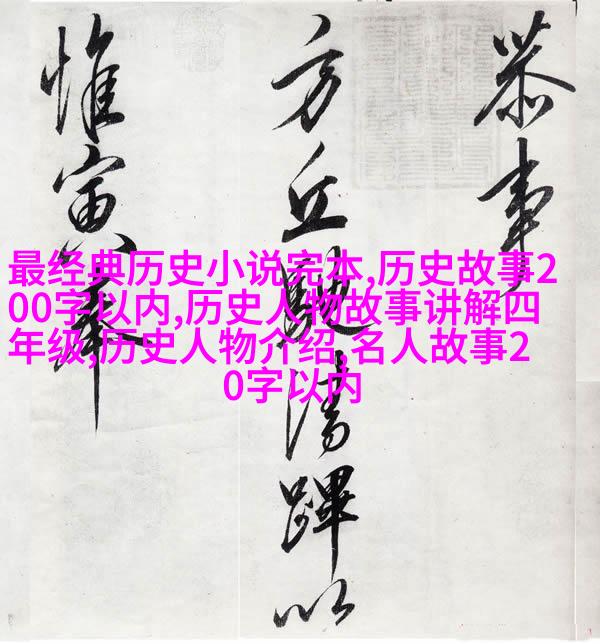 恭事
方丘馳清蹕以
惟寅奉
最经典历史小说完本,历史故事2
00字以内,历史人物故事讲解四
年级,历史人物介绍,名人故事2
0字以内